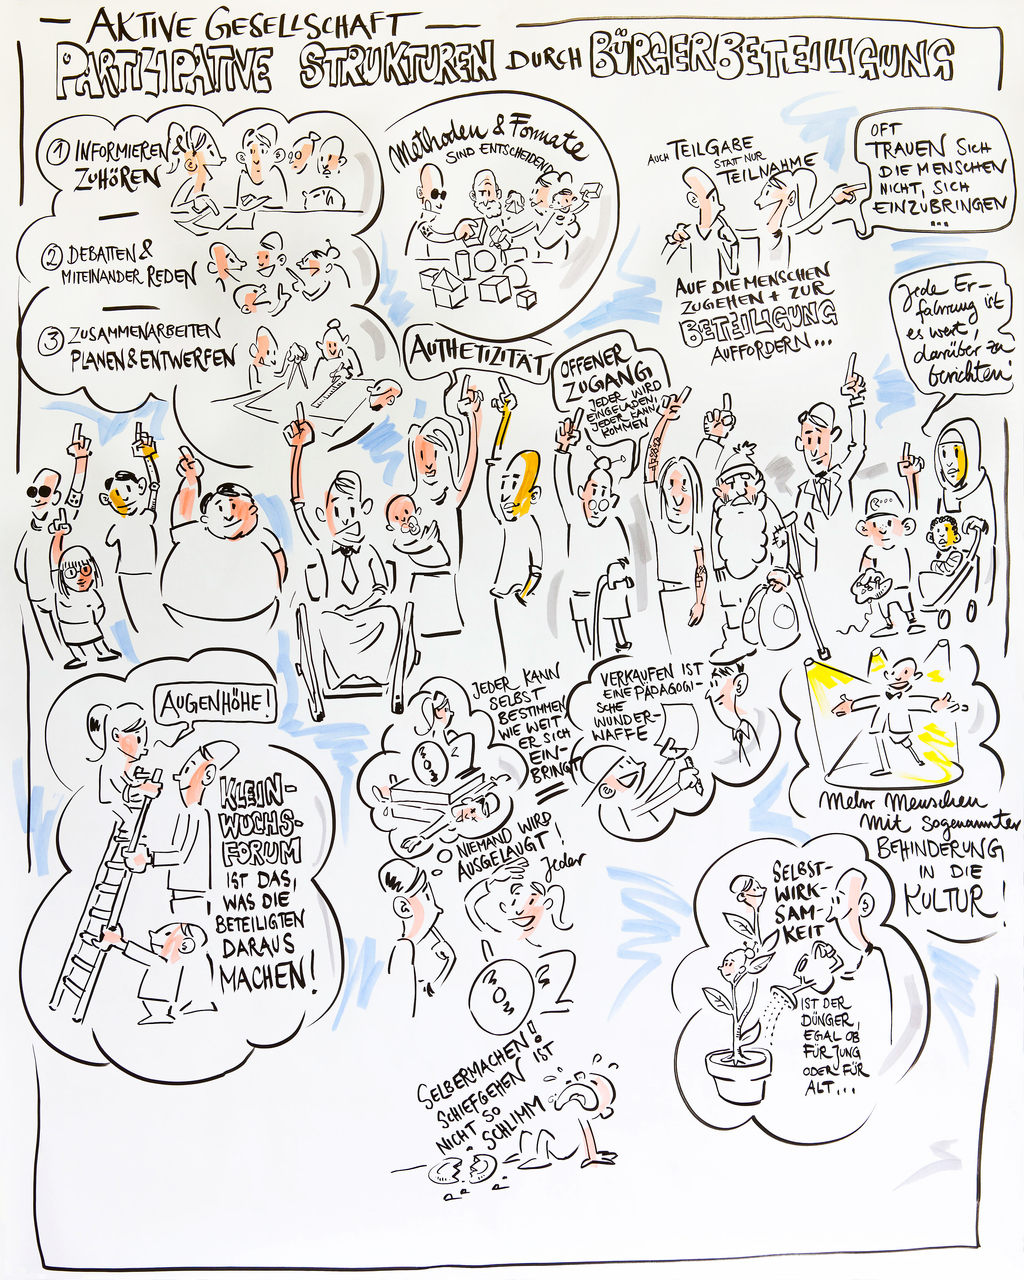 AKTIVE GESELLSCHAFT
PARTIZIPATIVE STRUKTUREN DURCH BÜRGERBETEILIGUNG
① INFORMIEREN &
ZUHÖREN
② DEBATTEN &
MITEINANDER REDEN
③ ZUSAMMENARBEITEN
PLANEN & ENTWERFEN
Methoden & Formate
SIND ENTSCHEIDEND
AUCH TEILGABE
STATT NUR
TEILNAHME
OFT
TRAUEN SICH
DIE MENSCHEN
NICHT, SICH
EINZUBRINGEN
...
AUF DIE MENSCHEN
ZUGEHEN + ZUR
BETEILIGUNG
AUFFORDERN...
Jede Er-
fahrung ist
es wert,
darüber zu
berichten!
AUTHETIZITÄT
OFFENER
ZUGANG
JEDER WIRD
EINGELADEN,
JEDER KANN
KOMMEN
AUGENHÖHE!
KLEIN-
WUCHS-
FORUM
IST DAS,
WAS DIE
BETEILIGTEN
DARAUS
MACHEN!
JEDER KANN
SELBST
BESTIMMEN
WIE WEIT
ER SICH
EIN-
BRINGT
NIEMAND WIRD
AUSGELAUGT!
Jeder
VERKAUFEN IST
EINE PÄDAGOGI-
SCHE
WUNDER-
WAFFE
Mehr Menschen
Mit sogenannter
BEHINDERUNG
IN DIE
KULTUR!
SELBST-
WIRK-
SAM-
KEIT
IST DER
DÜNGER,
EGAL OB
FÜR JUNG
ODER FÜR
ALT...
SELBERMACHEN!
SCHIEFGEHEN IST
NICHT SO
SCHLIMM